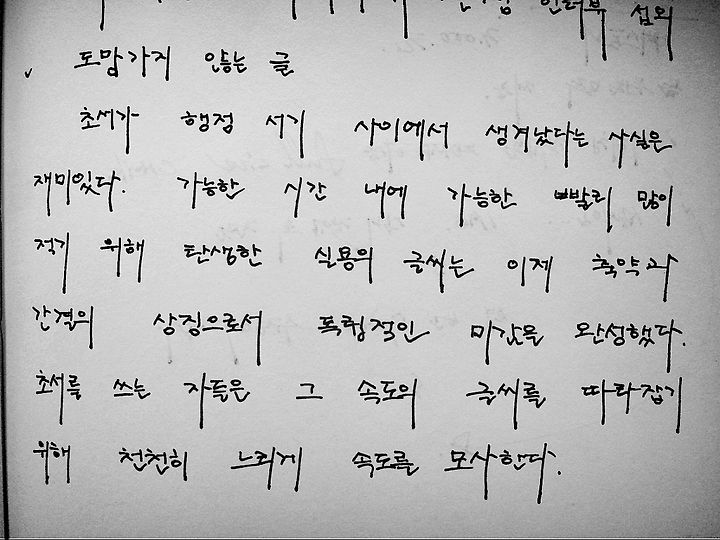 인터뷰 섭외
도망가지 않는 글
초서가 행정 서기 사이에서 생겨났다는 사실은
재미있다. 가능한 시간 내에 가능한 빨리 많이
적기 위해 탄생한 실용의 글씨는 이제 축약과
간결의 상징으로서 독립적인 미감을 완성했다.
초서를 쓰는 자들은 그 속도의 글씨를 따라잡기
위해 천천히 느리게 속도를 모사한다.